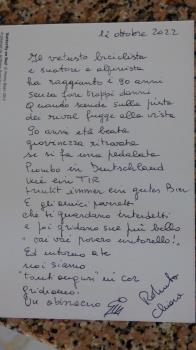 12 ottobre 2022
Il vetusto biciclista
e sciatore e alpinista
ha raggiunto i 90 anni
senza fare troppi danni
Quando scende sulla pista
dei rival fugge alla vista
90 anni età beata
giovinezza ritrovata
se si fa una pedalata
Piombo in Deutschland
trinkt immer ein gutes Bier
E gli amici
che ti guardano interdetti
e poi gridano sul più bello
"vai vai povero untorello!"
Ed intorno a te
noi siamo
"Tanti auguri" in cor
gridiamo!
Un abbraccio